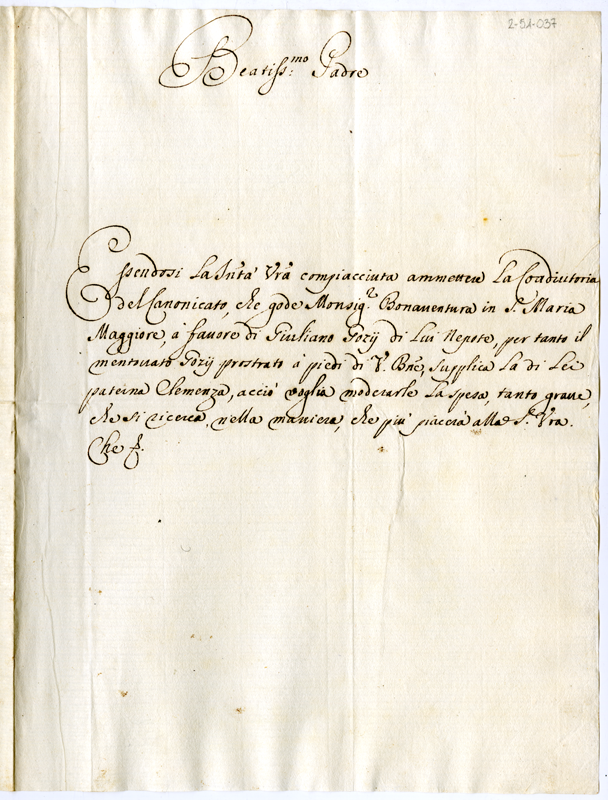 2-51-037
Beatiss:mo Padre
Essendosi La Sntà Vra compiacciuta ammettere La Coadiutoria
del Canonicato, che gode Monsigr. Bonaventura in S. Maria
Maggiore, à favore di Giuliano Gozij di Lui Nepote, per tanto il
mentovato Gozij prostrato à piedi di V. Bne, supplica La di Lei
paterna Clemenza, acciò voglia moderarle La spesa, tanto grave,
che si ricerca, nella maniera, che più piacerà alla S. Vra.
Che